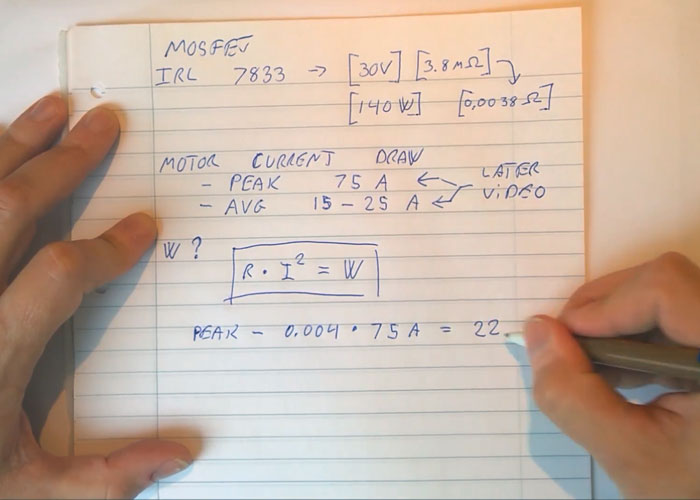 MOSFET
IRL 7833 → [30V] [3.8mΩ]
[140W] [0,0038Ω]
MOTOR CURRENT DRAW
- PEAK 75 A ← LATER
- AVG 15 - 25 A ← VIDEO
W ? R · I² = W
PEAK - 0.004 · 75A = 22.